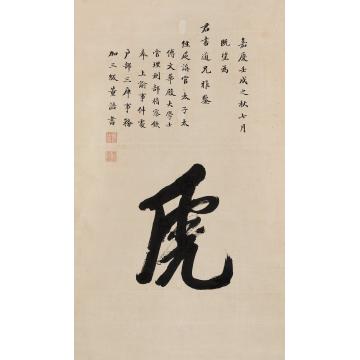 嘉慶壬戌之秋七月
既望為
君書道兄雅鑒
經筵講官太子太
傅文華殿大學士
管理刑部稽察欽
奉上諭事件處
戶部三庫事務
加三級董誥書
虎